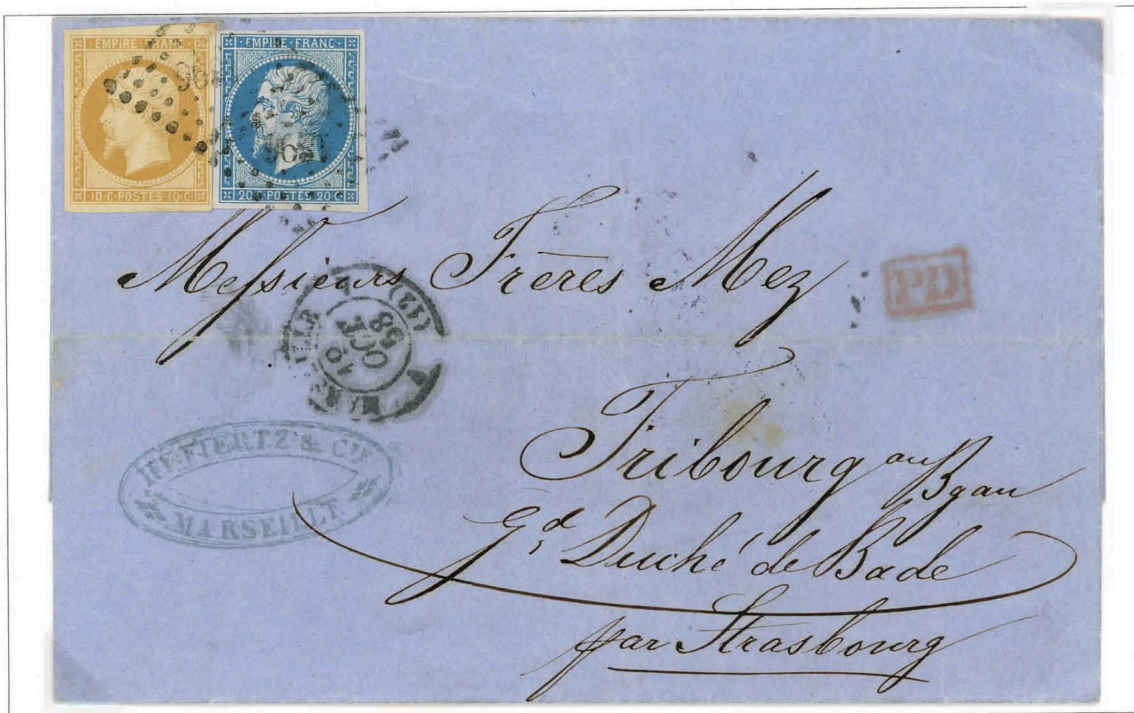 EMPIRE FRANC
10 C POSTES 10 C
EMPIRE FRANC
20 C POSTES 20 C
1896
Messieurs Frères Mez
PD
10
OCT
58
(12)
FIERTZ & CIE
MARSEILLE
Fribourg au Bgau
Gd Duché de Bade
par Strasbourg